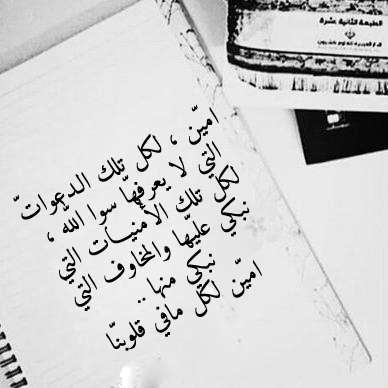 الطبعة الثانية عشرة
امين ، لكل تلك الدعوات
التي لا يعرفها سوا الله ،
لكل تلك الأمنيات التي
نبكي عليها والمخاوف التي
نبكي منها ..
امين لكل مافي قلوبنا